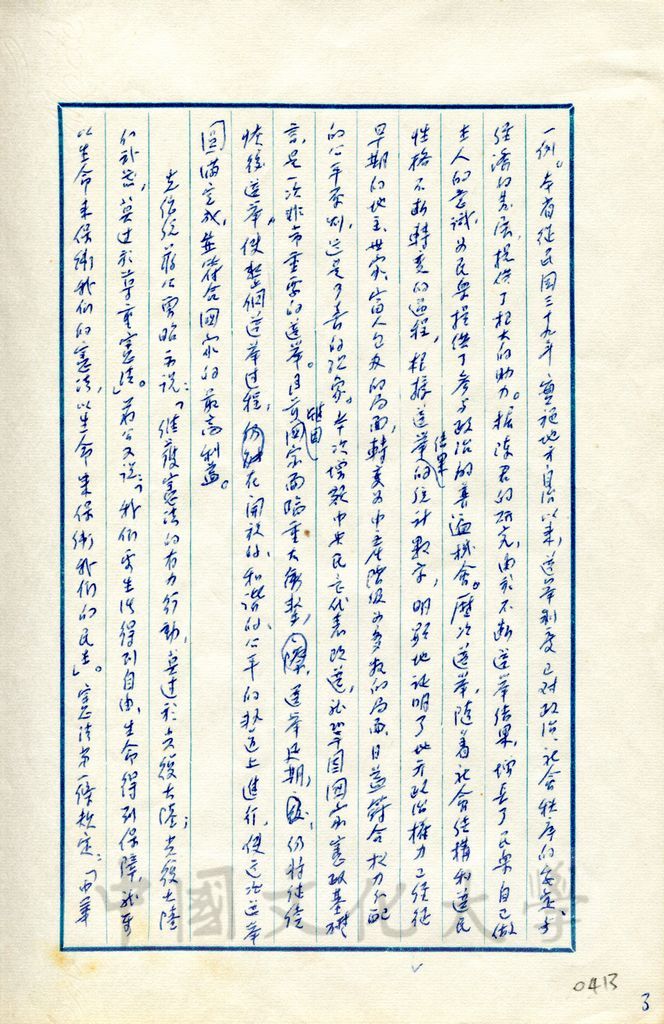 一例。本省從民國三十九年實施地方自治以來，選舉制度已對政治、社會秩序的安定與
經濟的發展，提供了極大的助力。據陳君的研究，由於不斷選舉結果，增長了民眾自己做
主人的意識，為民眾提供了參與政治的普遍機會。歷次選舉，隨著社會結構和選民
性格不斷轉變的過程，根據選舉結果的統計數字，明顯地証明了地方政治權力已經從
早期的地主、世家、富人包辦的局面，轉變為中產階級為多數的局面，日益符合權力分配
的公平原則，這是可喜的現象。本次增額中央民意代表改選，就鞏固國家憲政基礎
言，是一次非常重要的選舉。目前國家面臨重大衝擊，選舉延期，仍將繼續
恢復選舉，使整個選舉過程，在開放的、和諧的、公平的軌道上進行，使這次選舉
圓滿完成，並符合國家的最高利益。
先總統蔣公曾昭示說：「維護憲法的有力行動，莫過於光復大陸；光復大陸
的計劃，莫過於尊重憲法」。蔣公又說：「我們要生活得到自由，生命得到保障，就要
以生命來保衛我們的憲法，以生命來保衛我們的民主」。憲法第一條規定：「中華
中國文化大學
0413
3